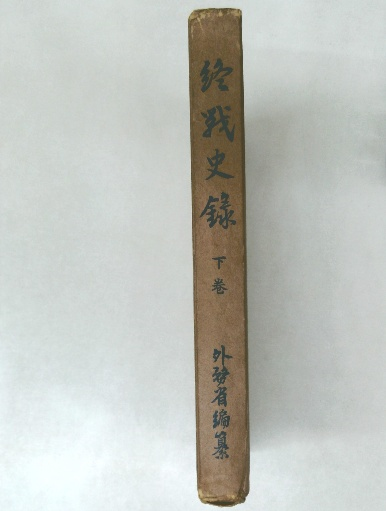 終戦史録
下巻
外務省編纂